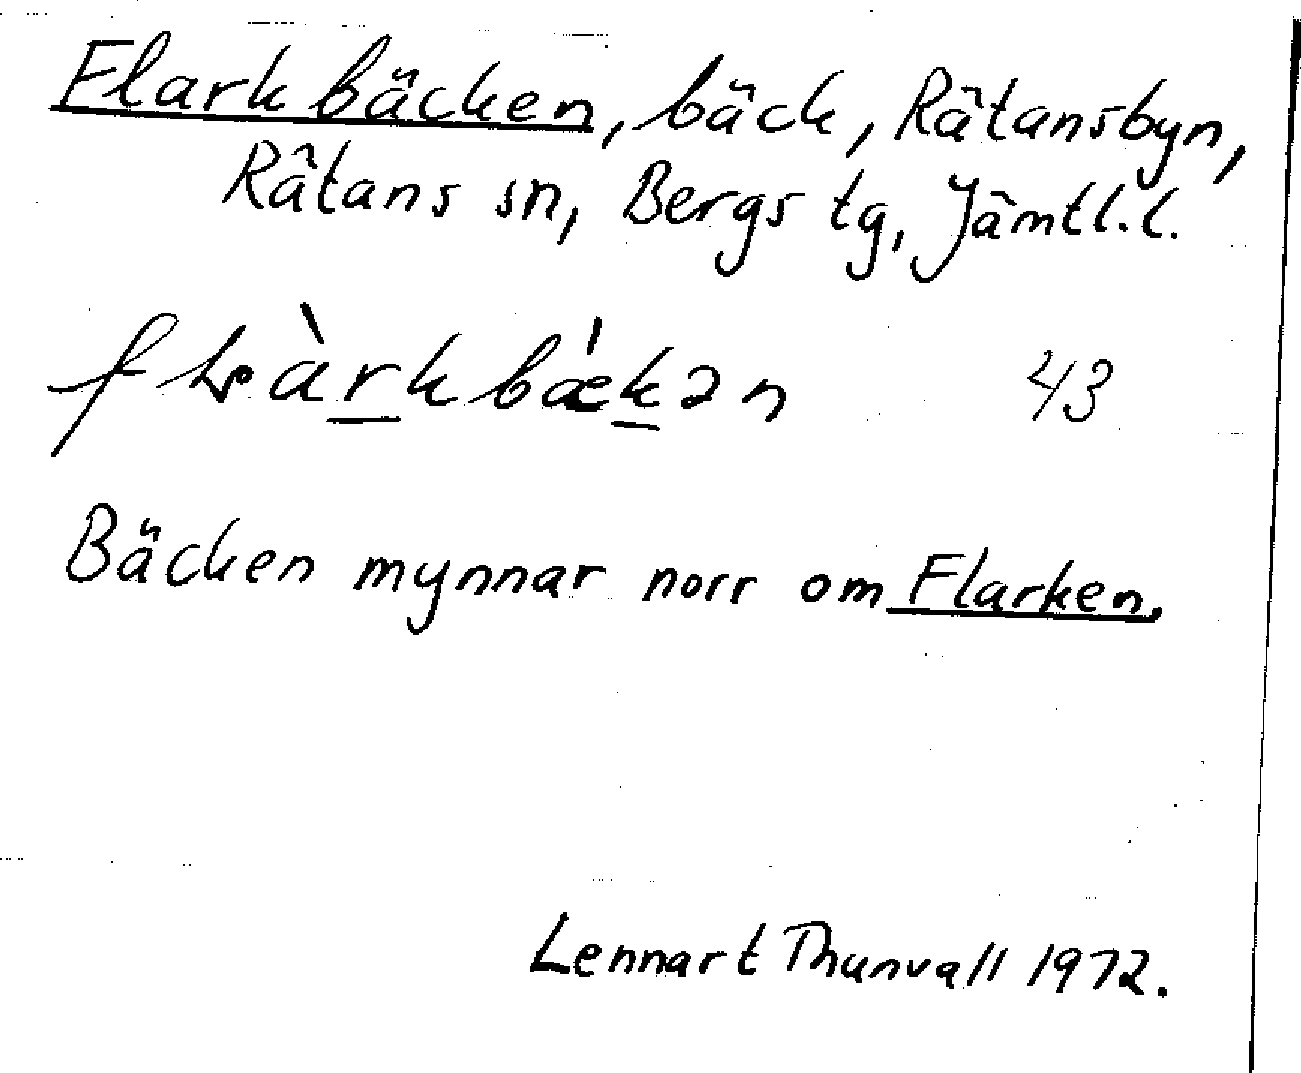 Flarkbäcken, bäck, Rätansbyn,
Rätans sn, Bergs tg, Jämtl.l.
fɫàrkbæ̀kən 43
Bäcken mynnar norr om Flarken.
Lennart Thunvall 1972.